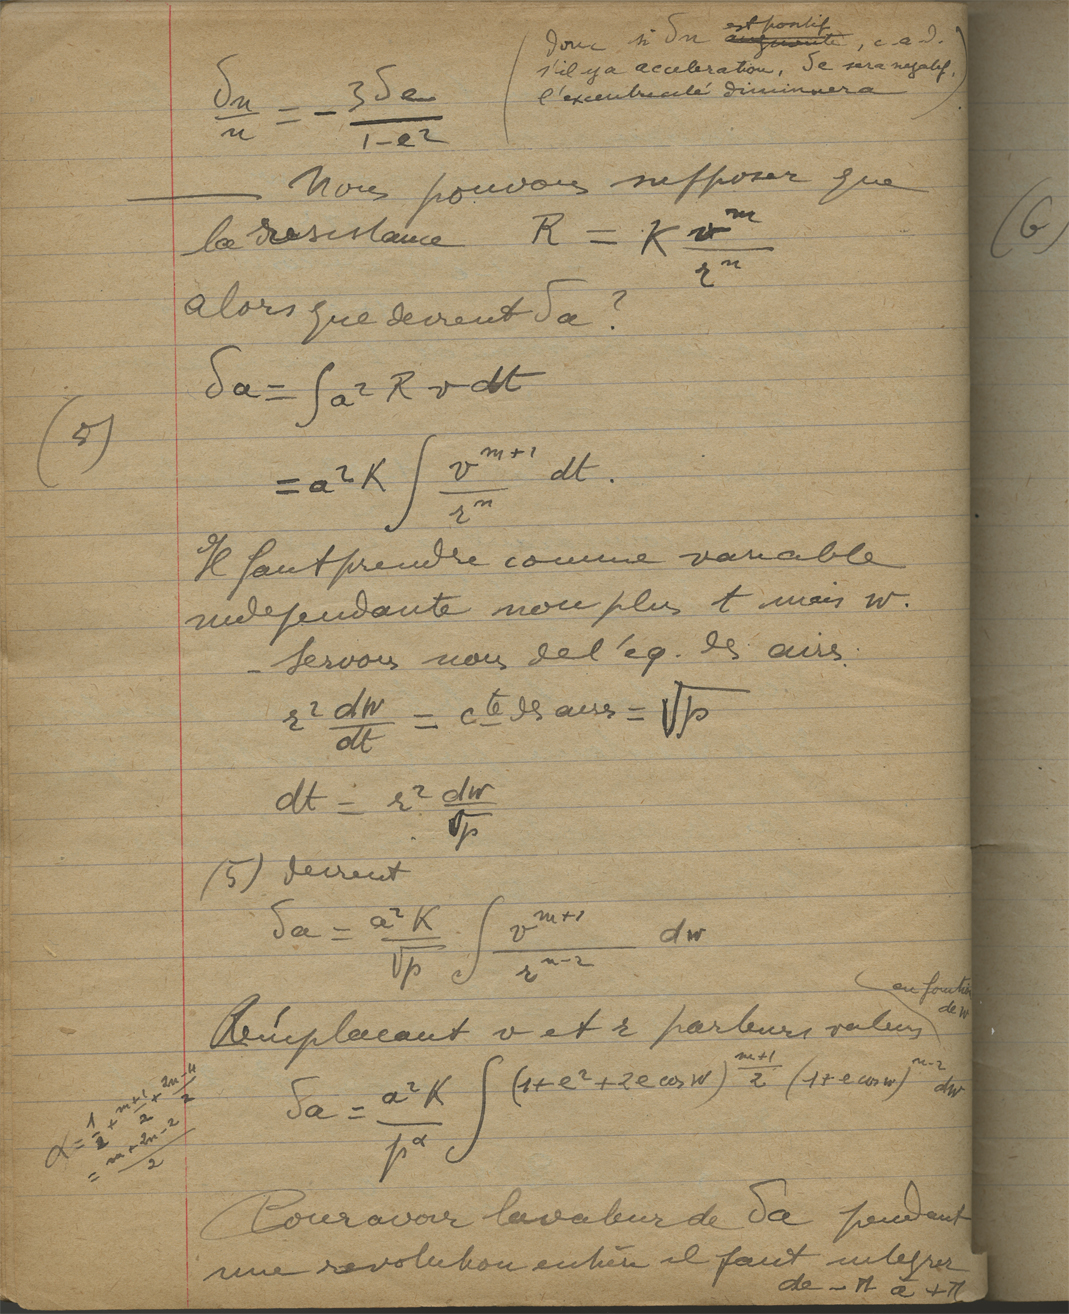 δn/n = - 3δe/(1-e²)
(donc si δn est positif ~~augmente~~, c.a.d.
s'il y a acceleration, δe sera negatif,
l'excentricité diminuera)
Nous pouvons supposer que
la resistance R = K v^m/r^n
alors que devient δa ?
δa = ∫ a² R v dt
(5)
= a² K ∫ v^(m+1)/r^n dt .
Il faut prendre comme variable
independante non plus t mais w.
- Servons nous de l'éq. des aires.
r² dw/dt = cte des aires = √p
dt = r² dw/√p
(5) devient
δa = a² K/√p ∫ v^(m+1)/r^(n-2) dw
Remplacant v et r par leurs valeurs
en fonction
de w
δa = a² K/p^α ∫ (1+e²+2e cos w)^((m+1)/2) (1+e cos w)^(n-2) dw
α = 1/2 + (m+1)/2 + (2n-4)/2
= (m+2n-2)/2
Pour avoir la valeur de δa pendant
une revolution entière il faut integrer
de -π à +π
(6)